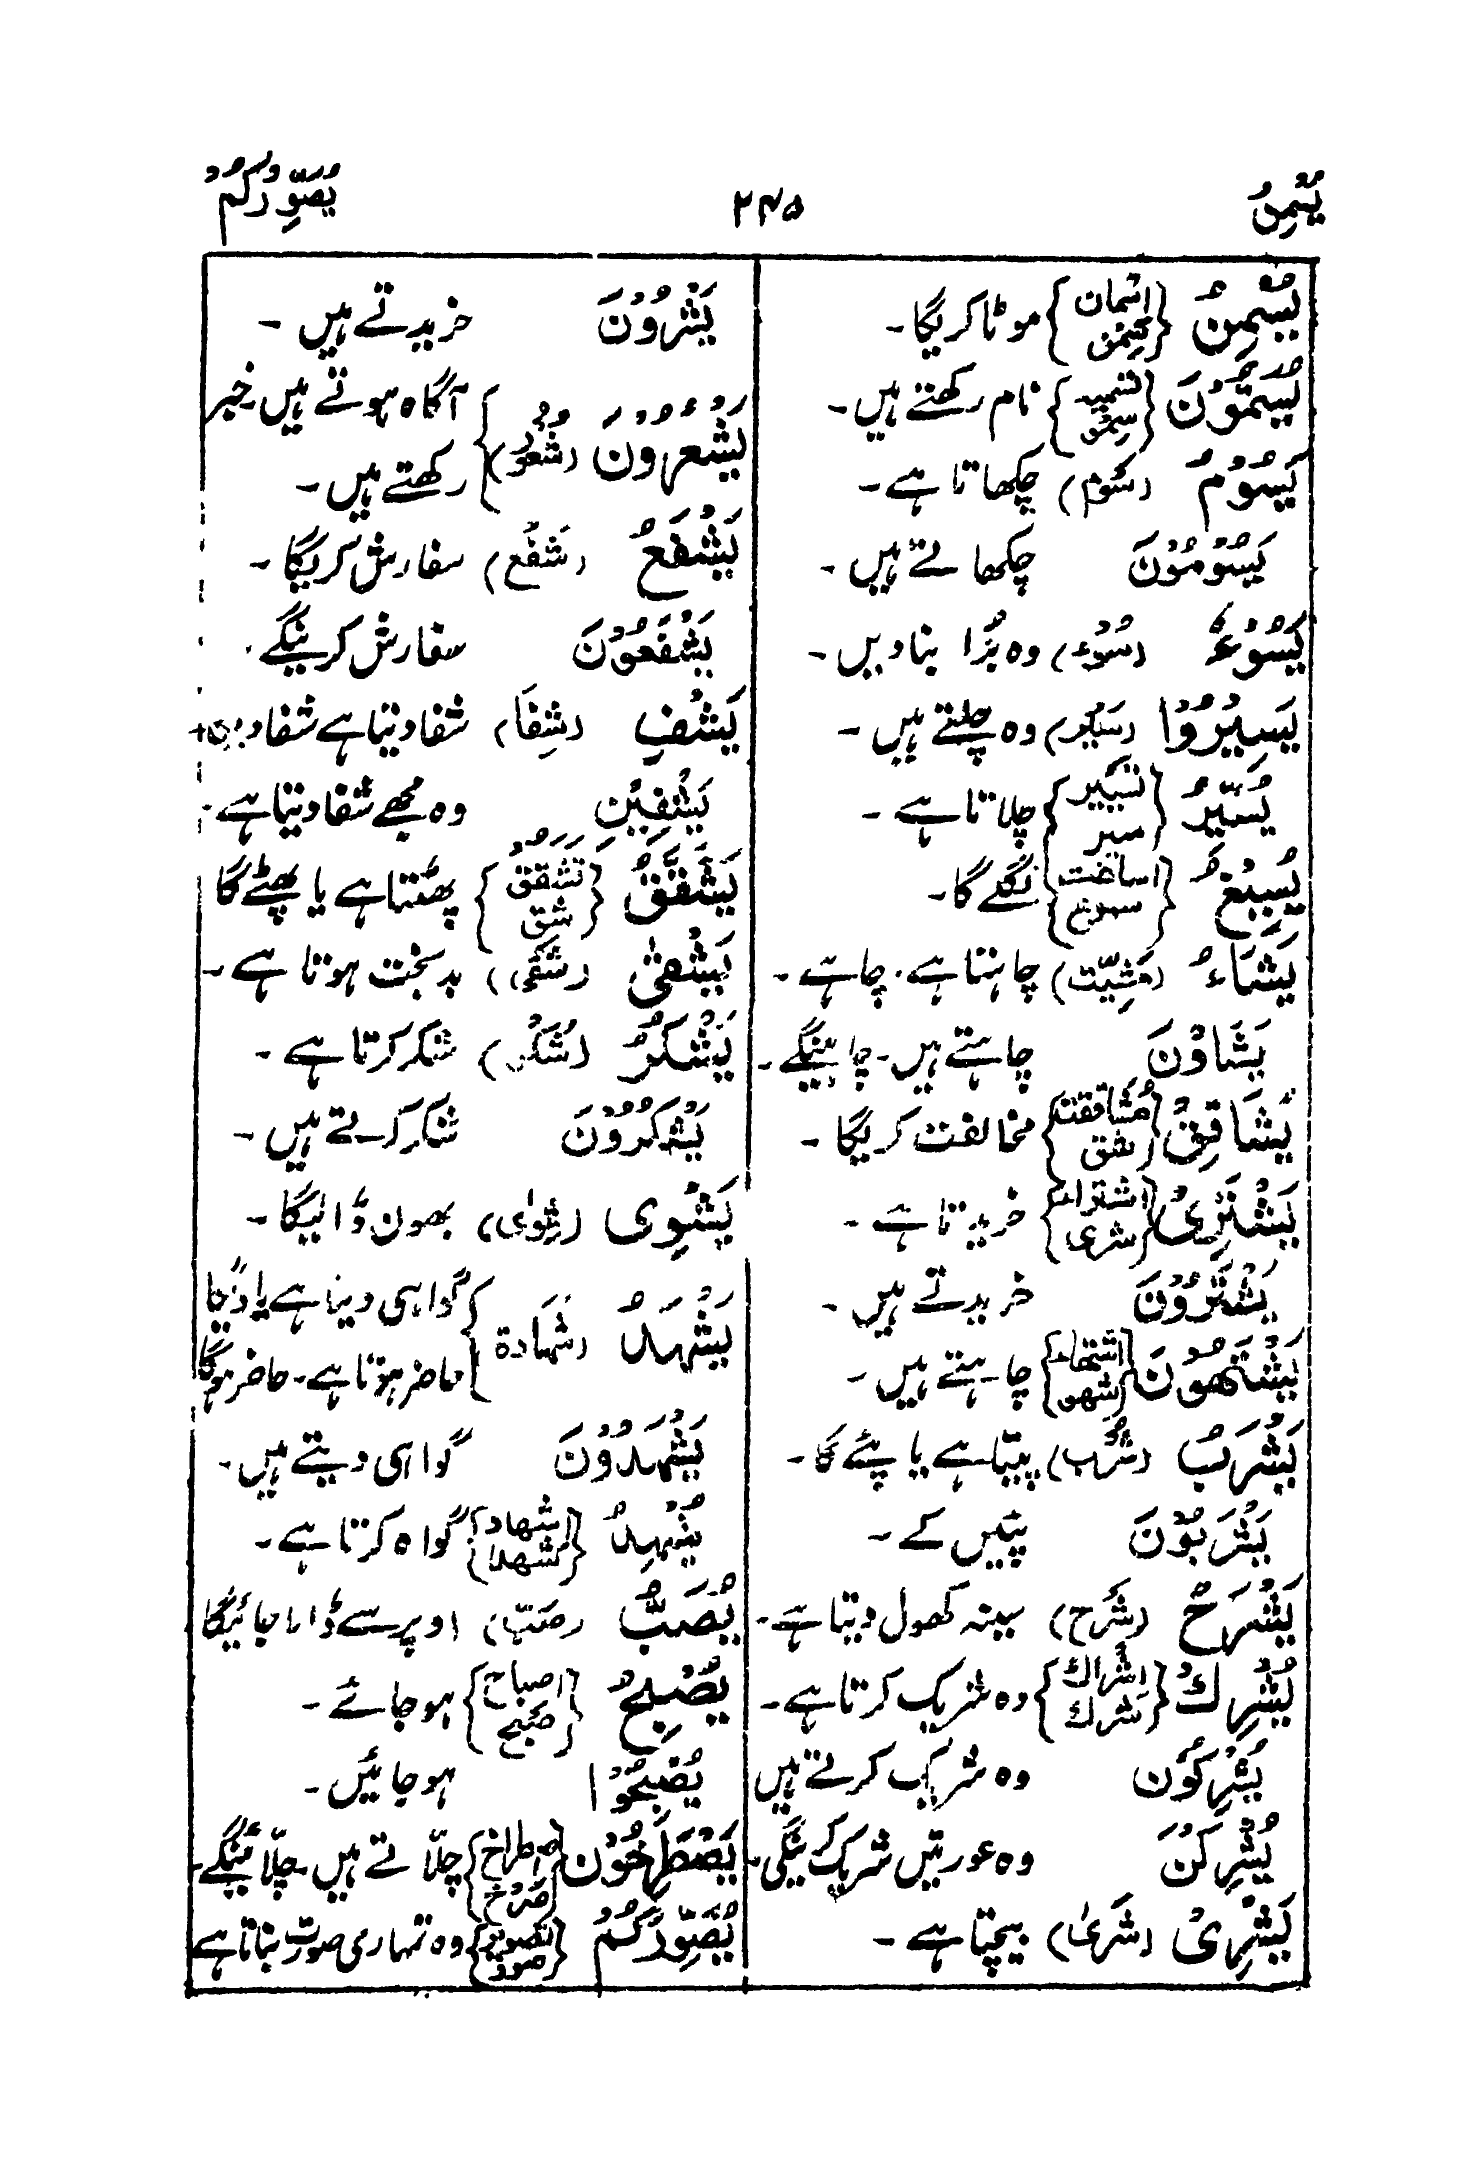 یُسْمِنُ ۲۴۵ یُصَوِّرُکُمْ
یُسْمِنُ {اسمان سمن} موٹا کریگا۔
یُسَمُّوْنَ {تسمیہ سمو} نام رکھتے ہیں۔
یَسُوْمُ (سَوْم) چکھاتا ہے۔
یَسُوْمُوْنَ چکھاتے ہیں۔
یَسُوْءُ (سُوْء) وہ بُرا بنا دیں۔
یَسِیْرُوْا (سَیْر) وہ چلتے ہیں۔
یُسَیِّرُ {تسییر سیر} چلاتا ہے۔
یُسِیْغُ {اساغت سوغ} نگلے گا۔
یَشَاءُ (مَشِیّت) چاہتا ہے۔ چاہے۔
یَشَاؤُنَ چاہتے ہیں۔ چاہینگے۔
یُشَاقِقُ {مُشَاققت شق} مخالفت کریگا۔
یَشْتَرِیْ {اشتراء شری} خریدتا ہے۔
یَشْتَرُوْنَ خریدتے ہیں۔
یَشْتَھُوْنَ {اشتھاء شھو} چاہتے ہیں۔
یَشْرَبُ (شُرْب) پیتا ہے یا پئے گا۔
یَشْرَبُوْنَ پئیں گے۔
یَشْرَحُ (شَرْح) سینہ کھول دیتا ہے۔
یُشْرِكُ {اشراك شرك} وہ شریک کرتا ہے۔
یُشْرِکُوْن وہ شریک کرتے ہیں
یُشْرِکْنَ وہ عورتیں شریک کرینگی۔
یَشْرِیْ (شَرٰی) بیچتا ہے۔
یَشْرُوْنَ خریدتے ہیں۔
یَشْعُرُوْنَ (شُعُوْر) {آگاہ ہوتے ہیں۔ خبر
رکھتے ہیں۔
یَشْفَعُ (شَفْع) سفارش کریگا۔
یَشْفَعُوْنَ سفارش کرینگے۔
یَشْفِ (شِفَا) شفا دیتا ہے شفا دے
یَشْفِیْنِ وہ مجھے شفا دیتا ہے۔
یَشَّقَّقُ {تَشَقُّق شق} پھٹتا ہے یا پھٹے گا
یَشْقٰی (شَقْی) بدبخت ہوتا ہے۔
یَشْکُرُ (شُکْر) شکر کرتا ہے۔
یَشْکُرُوْنَ شکر کرتے ہیں۔
یَشْوِی (شَوٰی) بھون ڈالیگا۔
یَشْہَدُ (شَہَادة) {گواہی دیتا ہے یا دیگا
حاضر ہوتا ہے۔ حاضر ہوگا
یَشْہَدُوْنَ گواہی دیتے ہیں۔
یُشْہِدُ {اشھاد شھد} گواہ کرتا ہے۔
یُصَبُّ (صَبّ) اوپر سے ڈالا جائیگا
یُصْبِحُ {اصباح صبح} ہو جائے۔
یُصْبِحُوْا ہو جائیں۔
یَصْطَرِخُوْنَ {اصطراخ صرخ} چلّاتے ہیں۔ چلّائینگے۔
یُصَوِّرُکُمْ {تصویر صور} وہ تمہاری صورت بناتا ہے